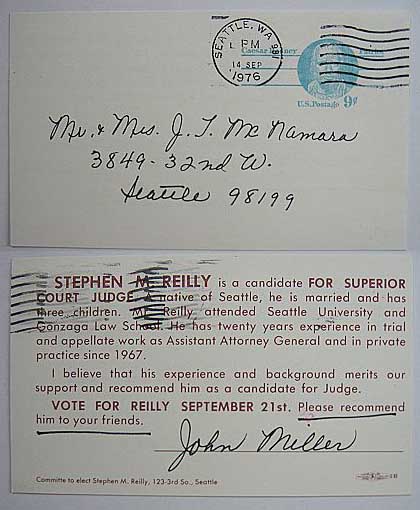 SEATTLE, WA 981
PM
14 SEP
1976
Caesar Rodney Patriot
U.S. Postage 9¢
Mr. & Mrs. J. T. McNamara
3849-32nd W.
Seattle 98199
STEPHEN M. REILLY is a candidate FOR SUPERIOR
COURT JUDGE. A native of Seattle, he is married and has
three children. Mr. Reilly attended Seattle University and
Gonzaga Law School. He has twenty years experience in trial
and appellate work as Assistant Attorney General and in private
practice since 1967.
I believe that his experience and background merits our
support and recommend him as a candidate for Judge.
VOTE FOR REILLY SEPTEMBER 21st. Please recommend
him to your friends.
John Miller
Committe to elect Stephen M. Reilly, 123-3rd So., Seattle